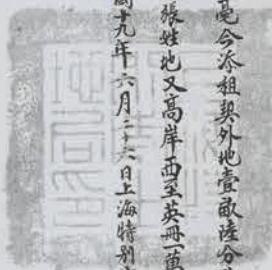 毫今添租契外地壹畝陸分
張姓地又高岸西至英冊一萬
國十九年六月二十六日上海特別